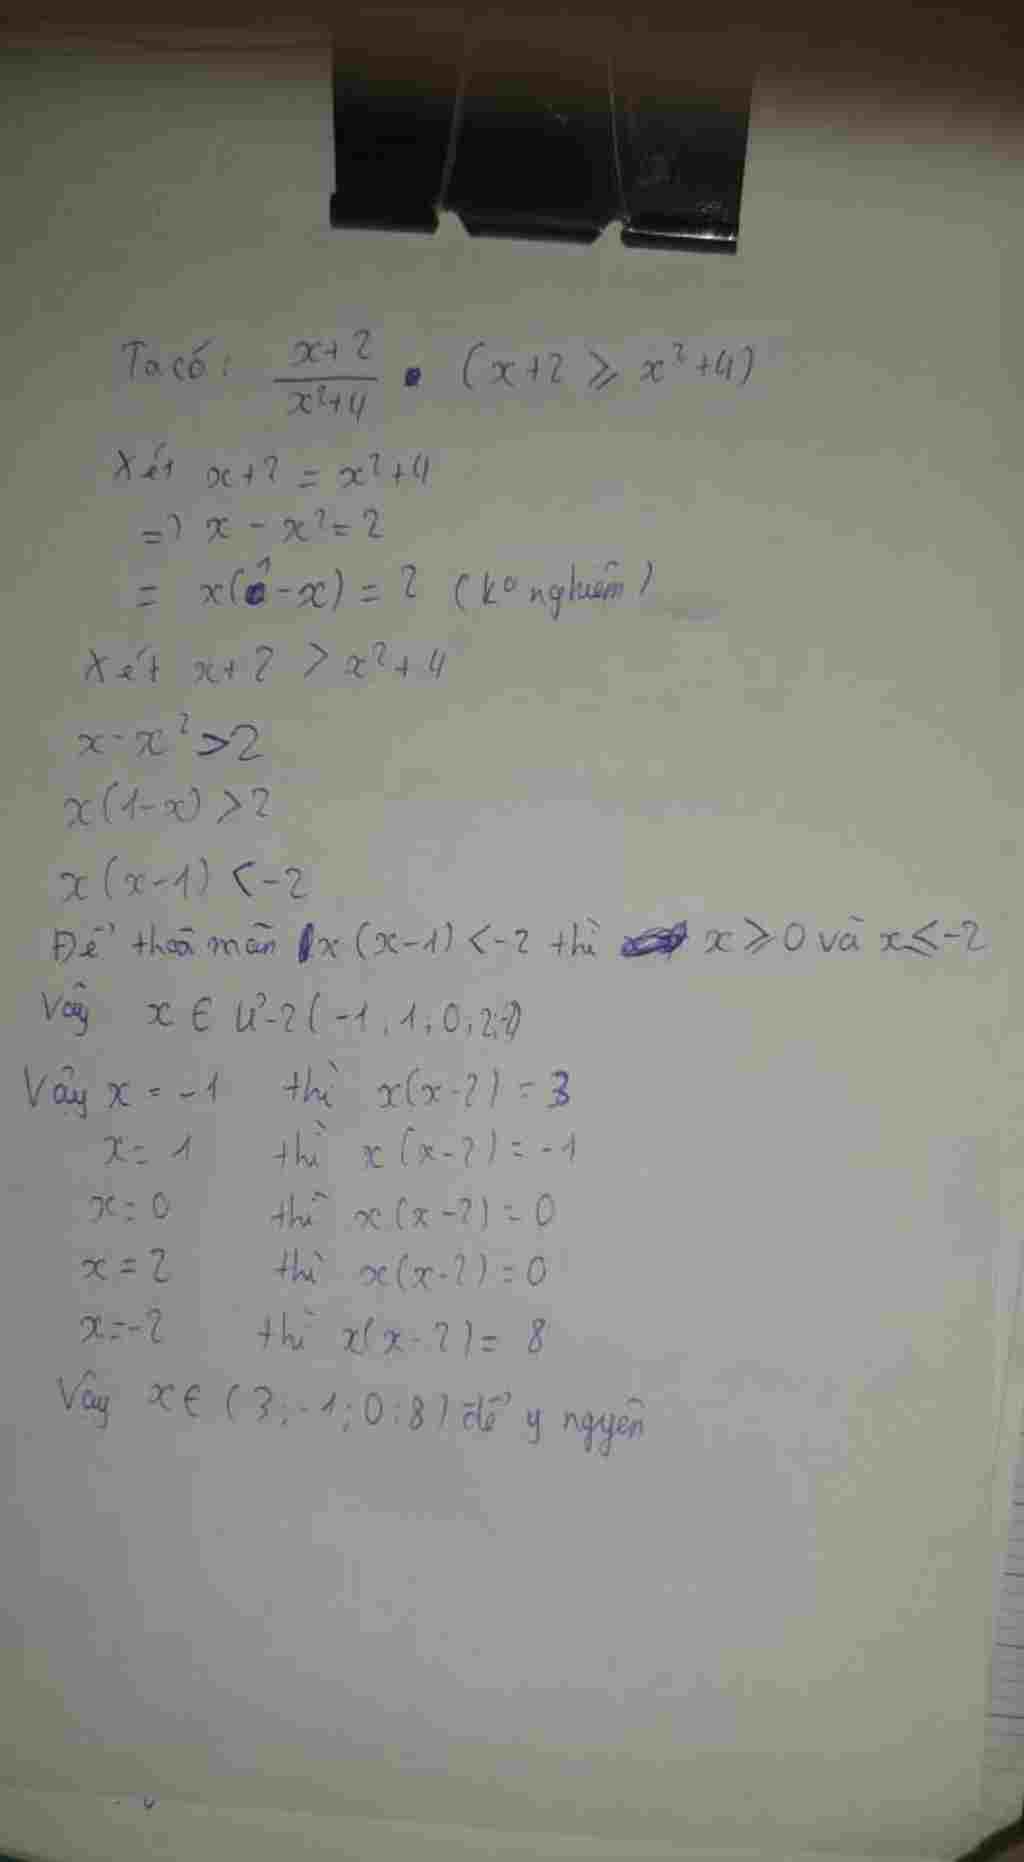 Ta có: \frac{x+2}{x²+4} • (x+2 ≥ x²+4)
Xét x+2 = x²+4
=) x - x² = 2
= x(1-x) = 2 (k° nghiêm)
Xét x+2 > x²+4
x-x²>2
x(1-x) > 2
x(x-1) <-2
Để thoã mãn x(x-1) <-2 thì x ≥ 0 và x ≤ -2
Vậy x ∈ Ư-2(-1,1,0,2,-2)
Vậy x = -1 thì x(x-2) = 3
x = 1 thì x(x-2) = -1
x = 0 thì x(x-2) = 0
x = 2 thì x(x-2) = 0
x = -2 thì x(x-2) = 8
Vậy x∈ (3;-1;0;8) để y ngyên